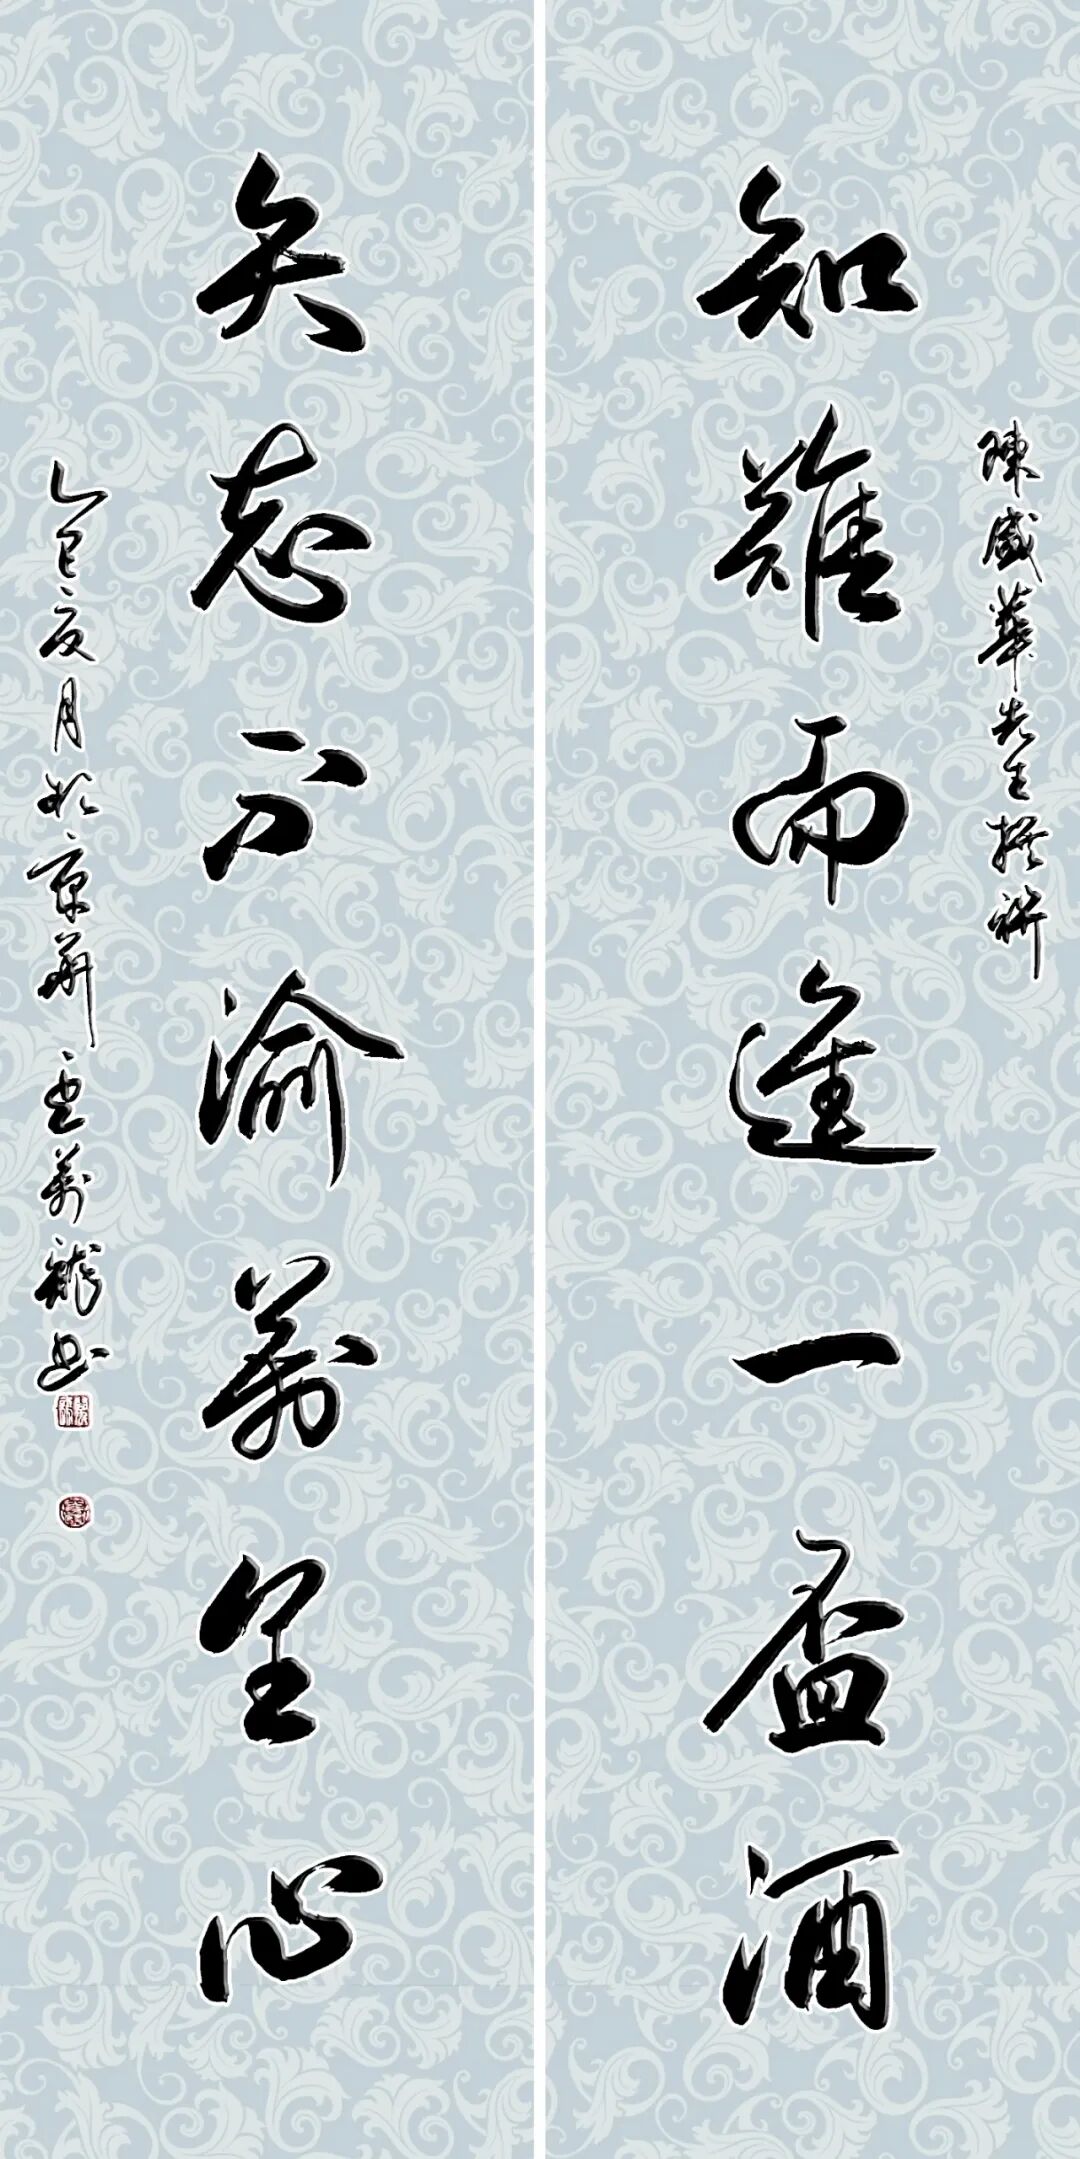 陳盛華先生撰聯
知難而進一盃酒
矢志不渝萬里心
乙巳夏月於京華萬龍書